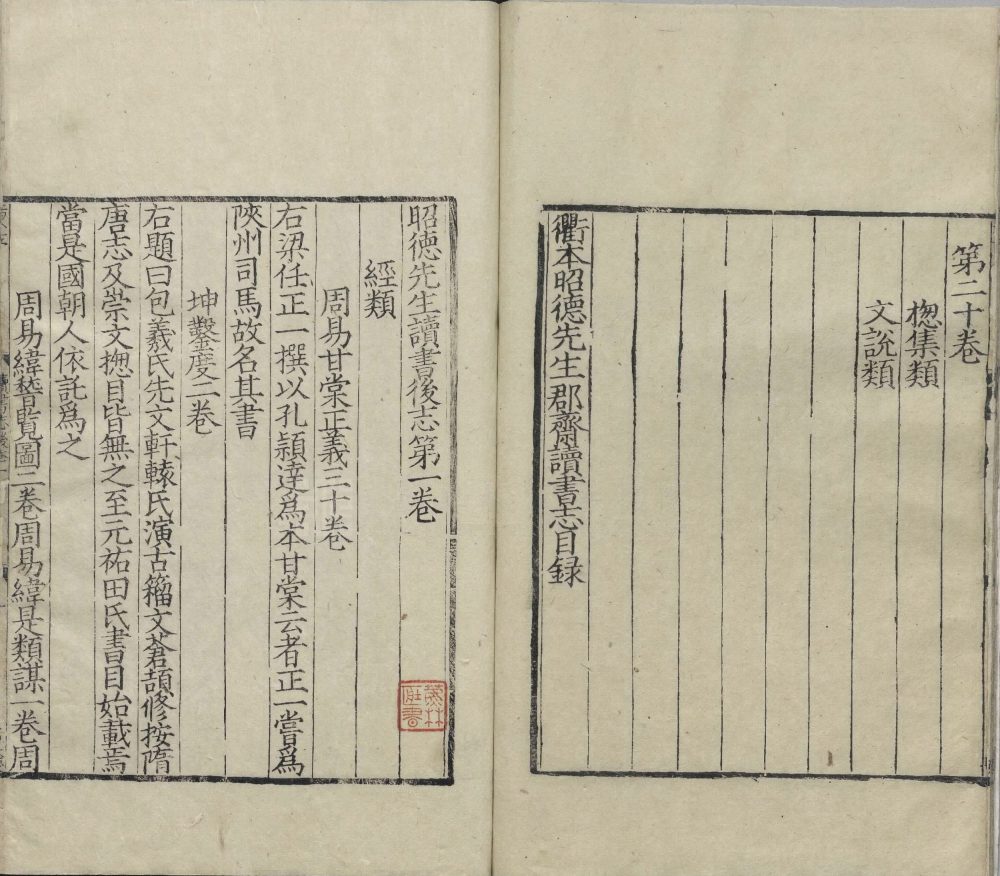 第二十卷
揔集類
文說類
衢本昭德先生郡齋讀書志目録
昭德先生讀書後志第一卷
經類
周易甘棠正義三十卷
右梁任正一撰以孔穎達爲本甘棠云者正一嘗爲
陝州司馬故名其書
坤鑿度二卷
右題曰包羲氏先文軒轅氏演古籀文蒼頡修按隋
唐志及崇文揔目皆無之至元祐田氏書目始載焉
當是國朝人依託爲之
周易緯稽覽圖二卷周易緯是類謀一卷周